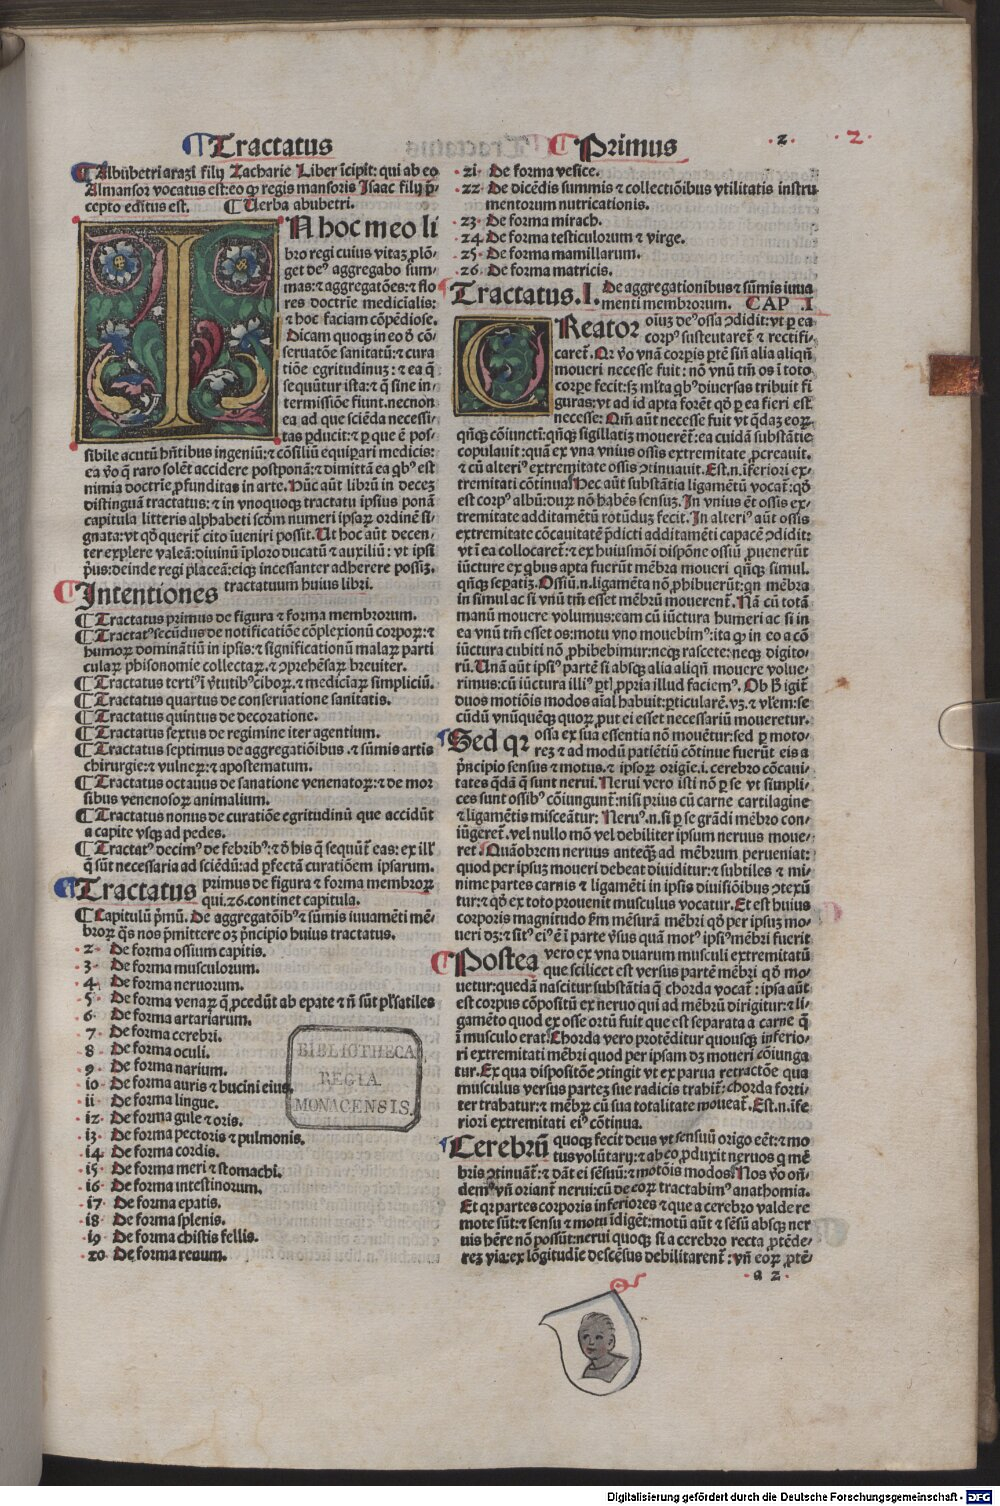 Tractatus
Primus
.2.
.2.
Albubetri arazi filij Zacharie Liber īcipit: qui ab eo
Almansor vocatus est: eo ꝙ regis mansoris Isaac filij p̄-
cepto editus est. ¶ Verba abubetri.
IN hoc meo li
bro regi cuius vitaꝫ ꝓlō-
get deꝰ aggregabo sum-
mas: ⁊ aggregatōes: ⁊ flo
res doctrīe medicīalis:
⁊ hoc faciam cōpēdiose.
Dicam quoqꝫ in eo ð cō-
seruatōe sanitatū: ⁊ cura
tiōe egritudinuꝫ: ⁊ ea q̄
sequūtur ista: ⁊ q̄ sine in-
termissiōe fiunt. necnon
ea ad que sciēda necessi-
tas ꝑducit: ⁊ ꝑ que ē pos-
sibile acutū hn̄tibus ingeniū: ⁊ cōsiliū equipari medicis:
ea ꝟo q̄ raro solēt accidere postponā: ⁊ dimittā ea qb̄ꝰ est
nimia doctrīe ꝓfunditas in arte. Nūc aūt librū in deceꝫ
distinguā tractatus: ⁊ in vnoquoqꝫ tractatu ipsius ponā
capitula litteris alphabeti scd̄m numeri ipsaꝝ ordinē si-
gnata: vt qd̄ querit̄ cito īueniri possit. Ut hoc aūt decen-
ter explere valeā: diuinū īploro ducatū ⁊ auxiliū: vt ipsi
p̄us: deinde regi placeā: eiqꝫ incessanter adherere possiꝫ.
¶ Intentiones tractatuum huius libri.
¶ Tractatus primus de figura ⁊ forma membrorum.
¶ Tractatꝰ secūdus de notificatiōe cōplexionū corporꝫ: ⁊
humoꝝ dominātiū in ipsis: ⁊ significationū malaꝝ parti
culaꝝ phisonomie collectaꝝ. ⁊ ꝯprehēsaꝝ breuiter.
¶ Tractatus tertiꝰ ī ꝟtutibꝰ ciboꝝ. ⁊ mediciaꝝ simpliciū.
¶ Tractatus quartus de conseruatione sanitatis.
¶ Tractatus quintus de decoratione.
¶ Tractatus sextus de regimine iter agentium.
¶ Tractatus septimus de aggregatiōibus. ⁊ sūmis artis
chirurgie: ⁊ vulneꝝ: ⁊ apostematum.
¶ Tractatus octauus de sanatione venenatoꝝ: ⁊ de mor
sibus venenosoꝝ animalium.
¶ Tractatus nonus de curatiōe egritudinū que accidūt
a capite vsqꝫ ad pedes.
¶ Tractatꝰ decimꝰ de febribꝰ: ⁊ ð his q̄ sequūt̄ eas: ex illꝰ
q̄ sūt necessaria ad sciēdū: ad ꝑfectā curatiōem ipsarum.
¶ Tractatus primus de figura ⁊ forma membroꝝ
qui .26. continet capitula.
¶ Capitulū p̄mū. De aggregatōibꝰ ⁊ sūmis iuuamēti mē-
broꝝ q̄s nos p̄mittere oꝫ p̄ncipio huius tractatus.
.2. De forma ossium capitis.
.3. De forma musculorum.
.4. De forma neruorum.
.5. De forma venaꝝ q̄ ꝓcedūt ab epate ⁊ n̄ sūt pl̄satiles
.6. De forma artariarum.
.7. De forma cerebri.
.8. De forma oculi.
.9. De forma narium.
.10. De forma auris ⁊ bucini eius.
.11. De forma lingue.
.12. De forma gule ⁊ oris.
.13. De forma pectoris ⁊ pulmonis.
.14. De forma cordis.
.15. De forma meri ⁊ stomachi.
.16. De forma intestinorum.
.17. De forma epatis.
.18. De forma splenis.
.19. De forma chistis fellis.
.20. De forma renum.
BIBLIOTHECA
REGIA
MONACENSIS.
.21. De forma vesice.
.22. De dicēdis summis ⁊ collectiōibus vtilitatis instru
mentorum nutricationis.
.23. De forma mirach.
.24. De forma testiculorum ⁊ virge.
.25. De forma mamillarum.
.26. De forma matricis.
Tractatus .I. De aggregationibus ⁊ sūmis iuua
menti membrorum. CAP .I
CReator oiuꝫ deꝰ ossa ꝯdidit: vt ꝑ ea
corpꝰ sustentaret̄ ⁊ rectifi-
caret̄. Qꝛ ꝟo vnā corpis ꝑtē sin̄ alia aliqn̄
moueri necesse fuit: nō vnū tm̄ os ī toto
corpe fecit: sꝫ ml̄ta qb̄ꝰ diuersas tribuit fi
guras: vt ad id apta forēt qd̄ ꝑ ea fieri est
necesse. Qm̄ aūt necesse fuit vt q̄daꝫ eoꝝ
qn̄qꝫ cōiuncti: qn̄qꝫ sigillatiꝫ mouerēt̄: ea cuidā substātie
copulauit: quā ex vna vnius ossis extremitate ꝓcreauit.
⁊ cū alteriꝰ extremitate ossis ꝯtinuauit. Est .n. īferiori ex-
tremitati cōtinua. Hec aūt substātia ligamētū vocat̄: qd̄
est corpꝰ albū: duꝝ nō habēs sensuꝫ. In vnius et̄ ossis ex-
tremitate additamētū rotūduꝫ fecit. In alteriꝰ aūt ossis
extremitate cōcauitatē p̄dicti additamēti capacē ꝯdidit:
vt ī ea collocaret̄: ⁊ ex huiusmōi dispōne ossiū ꝓuenerūt
iūcture ex qb̄us apta fuerūt mēbra moueri qn̄qꝫ simul.
qn̄qꝫ sepatiꝫ. Ossiū .n. ligamēta nō ꝓhibuerūt: qn mēbra
in simul ac si vnū tm̄ esset mēbrū mouerent̄. Nā cū totā
manū mouere volumus: eam cū iūctura humeri ac si in
ea vnū tm̄ esset os: motu vno mouebimꝰ: ita ꝙ in eo a cō
iūctura cubiti nō ꝓhibebimur: neqꝫ rascete: neqꝫ digito-
rū. Unā aūt ipsiꝰ partē si absqꝫ alia aliqn̄ mouere volue-
rimus: cū iūctura illiꝰ ꝑti ꝓpria illud faciemꝰ. Ob ꝟ igit̄
duos motiōis modos aīal habuit: ꝑticularē. vꝫ. ⁊ vl̄em: se
cūdū vnūquēqꝫ quoꝝ ꝓut ei esset necessariū moueretur.
Sed qꝛ ossa ex sua essentia nō mouētur: sed ꝑ moto-
reꝫ ⁊ ad modū patiētiū cōtinue fuerūt eis a
p̄ncipio sensus ⁊ motus. ⁊ ipsoꝝ origīe .i. cerebro cōcaui-
tates q̄dā q̄ sunt nerui. Nerui vero isti nō ꝑ se vt simpli-
ces sunt ossibꝰ cōiungunt̄: nisi prius cū carne cartilagine
⁊ ligamētis misceātur: Neruꝰ .n. si ꝑ se grādi mēbro con-
iūgeret̄. vel nullo mō vel debiliter ipsum neruus moue-
ret. Quāobrem neruus anteqꝫ ad mēbrum perueniat:
quod per ipsuꝫ moueri debeat diuiditur: ⁊ subtiles ⁊ mi-
nime partes carnis ⁊ ligamēti in ipsis diuisiōibus ꝯtexū
tur: ⁊ qd̄ ex toto prouenit musculus vocatur. Et est huius
corporis magnitudo ẜm mēsurā mēbri qd̄ per ipsuꝫ mo-
ueri dꝫ: ⁊ sitꝰ eiꝰ ē ī parte ꝟsus quā motꝰ ipsiꝰ mēbri fuerit
¶ Postea vero ex vna duarum musculi extremitatū
que scilicet est versus partē mēbri qd̄ mo-
uetur: quedā nascitur substātia q̄ chorda vocat̄: ipsa aūt
est corpus cōpositū ex neruo qui ad mēbrū dirigitur: ⁊ li-
gamēto quod ex osse ortū fuit que est separata a carne q̄
ī musculo erat. Chorda vero protēditur quousqꝫ inferio-
ri extremitati mēbri quod per ipsam dꝫ moueri cōiunga
tur. Ex qua dispositōe ꝯtingit vt ex parua retractōe qua
musculus versus parteꝫ sue radicis trahit̄: chorda forti-
ter trahatur: ⁊ mēbꝝ cū sua totalitate moueat̄. Est .n. īfe
riori extremitati eiꝰ cōtinua.
Cerebrū quoqꝫ fecit deus vt sensuū origo eēt: ⁊ mo
tus volūtarij: ⁊ ab eo ꝓduxit neruos q mē
bris ꝯtinuāt̄: ⁊ dāt ei sēsuū: ⁊ motōis modos. Nos ꝟo on̄-
demꝰ vn̄ oriant̄ nerui: cū de eoꝝ tractabimꝰ anathomia.
Et qꝛ partes corporis inferiores ⁊ que a cerebro valde re
mote sūt: ⁊ sensu ⁊ motu īdigēt: motū aūt ⁊ sēsū absqꝫ ner
uis hēre nō possūt: nerui quoqꝫ si a cerebro recta ꝓtēde-
reꝫ via: ex lōgitudīe descēsus debilitarent̄: vn̄ eoꝝ ꝓtē-
.a 2.
Digitalisierung gefördert durch die Deutsche Forschungsgemeinschaft - DFG